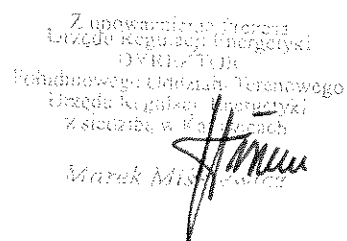 Z upoważnienia Prezesa
Urzędu Regulacji Energetyki
DYREKTOR
Południowego Oddziału Terenowego
Urzędu Regulacji Energetyki
z siedzibą w Katowicach
Marek